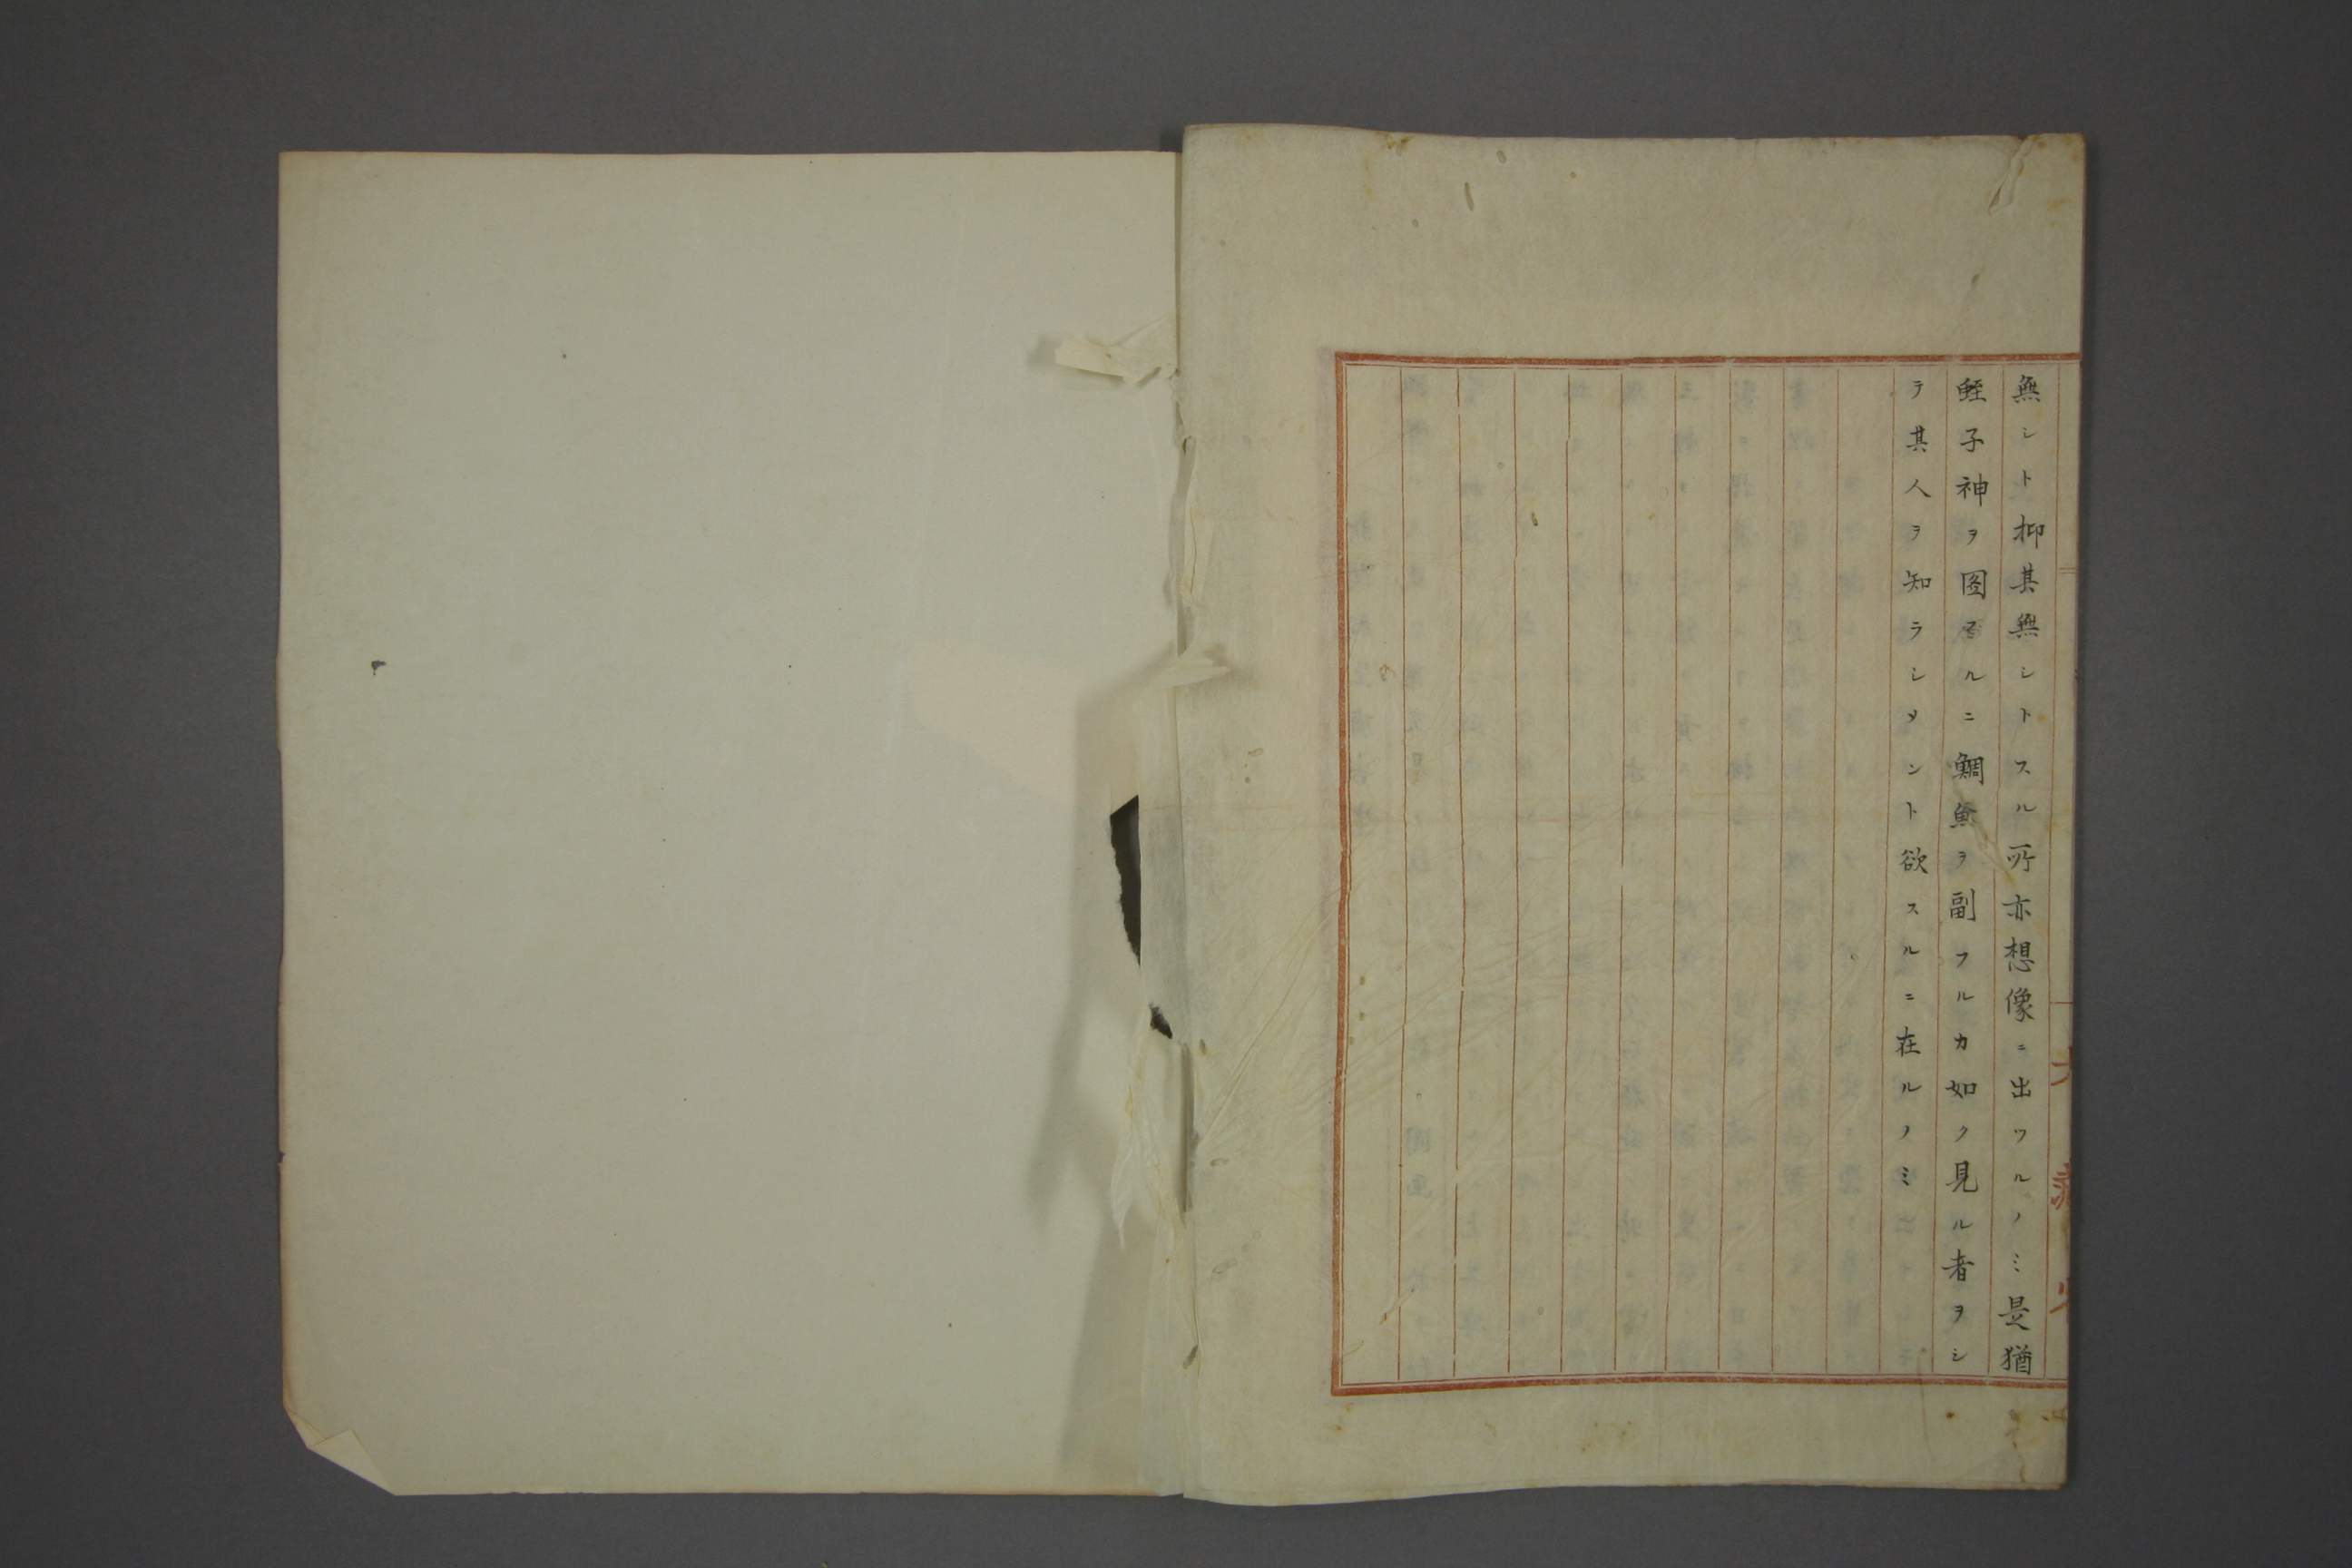 無シト抑其無シトスル所亦想像ニ出ツルノミ是猶
蛭子神ヲ図スルニ鯛魚ヲ副フルカ如ク見ル者ヲシ
テ其人ヲ知ラシメント欲スルニ在ルノミ